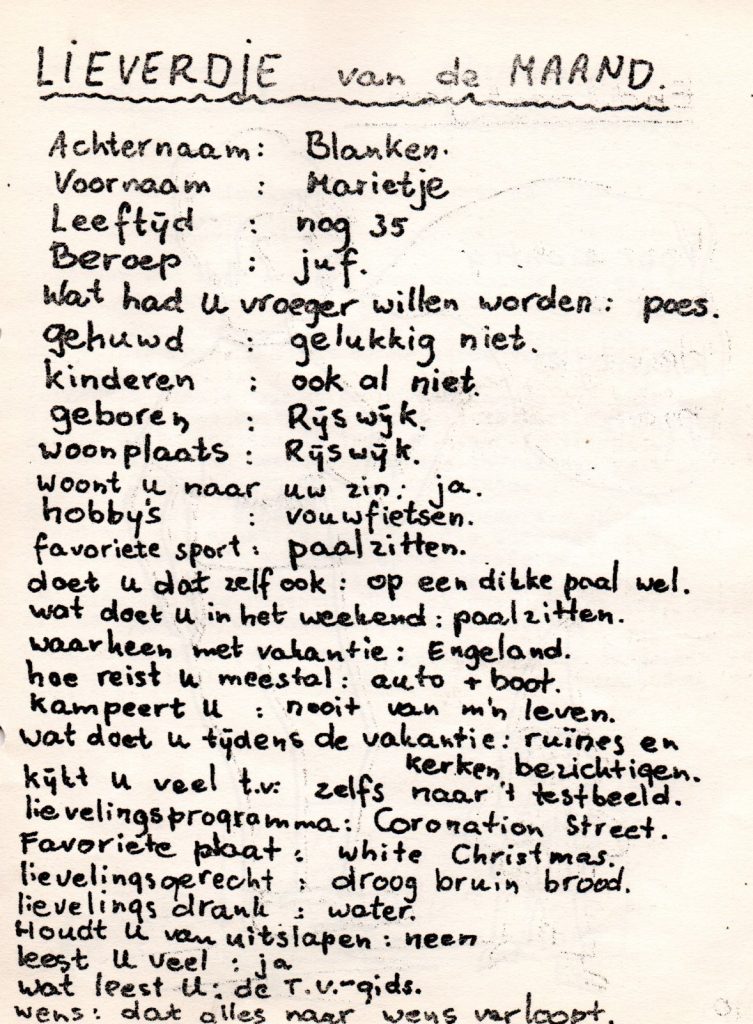 LiEVERDjE van de MAAND.
Achternaam: Blanken.
Voornaam : Marietje
Leeftijd : nog 35
Beroep : juf.
Wat had u vroeger willen worden: poes.
gehuwd : gelukkig niet.
kinderen : ook al niet.
geboren : Rijswijk.
woonplaats: Rijswijk.
woont u naar uw zin: ja.
hobby's : vouwfietsen.
favoriete sport: paalzitten.
doet u dat zelf ook: op een dikke paal wel.
wat doet u in het weekend: paalzitten.
waarheen met vakantie: Engeland.
hoe reist u meestal: auto + boot.
kampeert u : nooit van m'n leven.
wat doet u tijdens de vakantie: ruïnes en
kerken bezichtigen.
kijkt u veel t.v: zelfs naar 't testbeeld.
lievelingsprogramma: Coronation Street.
Favoriete plaat: white Christmas.
lievelingsgerecht : droog bruin brood.
lievelings drank : water.
Houdt u van uitslapen: neen
leest u veel : ja
wat leest u: de T.V.-gids.
wens: dat alles naar wens verloopt.